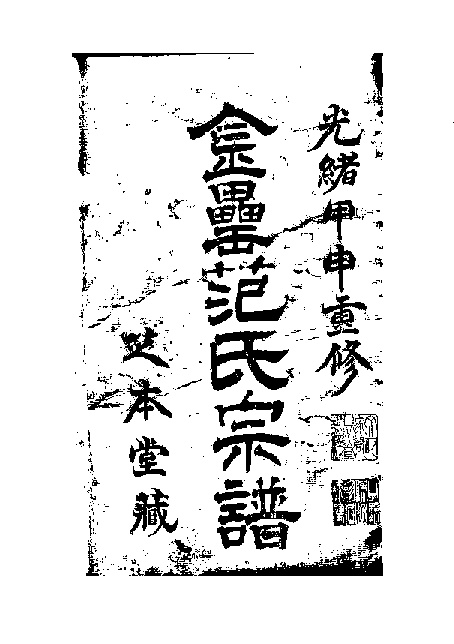 光緒甲申重修
金罍范氏宗譜
本堂藏